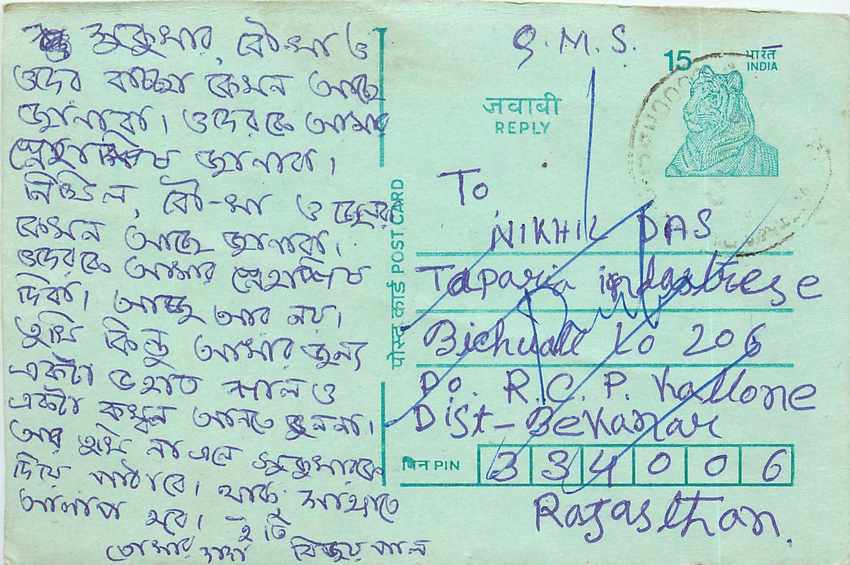 সুকুমার, বৌ-মা ও
ওদের বাচ্চা কেমন আছে
জানাবা। ওদেরকে আমার
স্নেহাশিষ জানাবা।
নিখিল, বৌ-মা ও ছেলেরা
কেমন আছে জানাবা।
ওদেরকে আমার স্নেহাশিষ
দিবা। আচ্ছা আর নয়।
তুমি কিন্তু আমার জন্য
একটা ভাল শাল ও
একটা কম্বল আনতে ভুলনা।
আর তুমি না এলে সুকুমারকে
দিয়ে পাঠাবে। থাক, সাক্ষাতে
আলাপ হবে। ইতি
তোমার দাদা বিজয় পাল
G.M.S.
15 भारत
INDIA
जवाबी
REPLY
पोस्ट कार्ड POST CARD
To
NIKHIL DAS
Taparia indastrese
Bichuali Lo 206
Po. R.C.P. Kallone
Dist-Bekanar
पिन PIN 334006
Rajasthan.